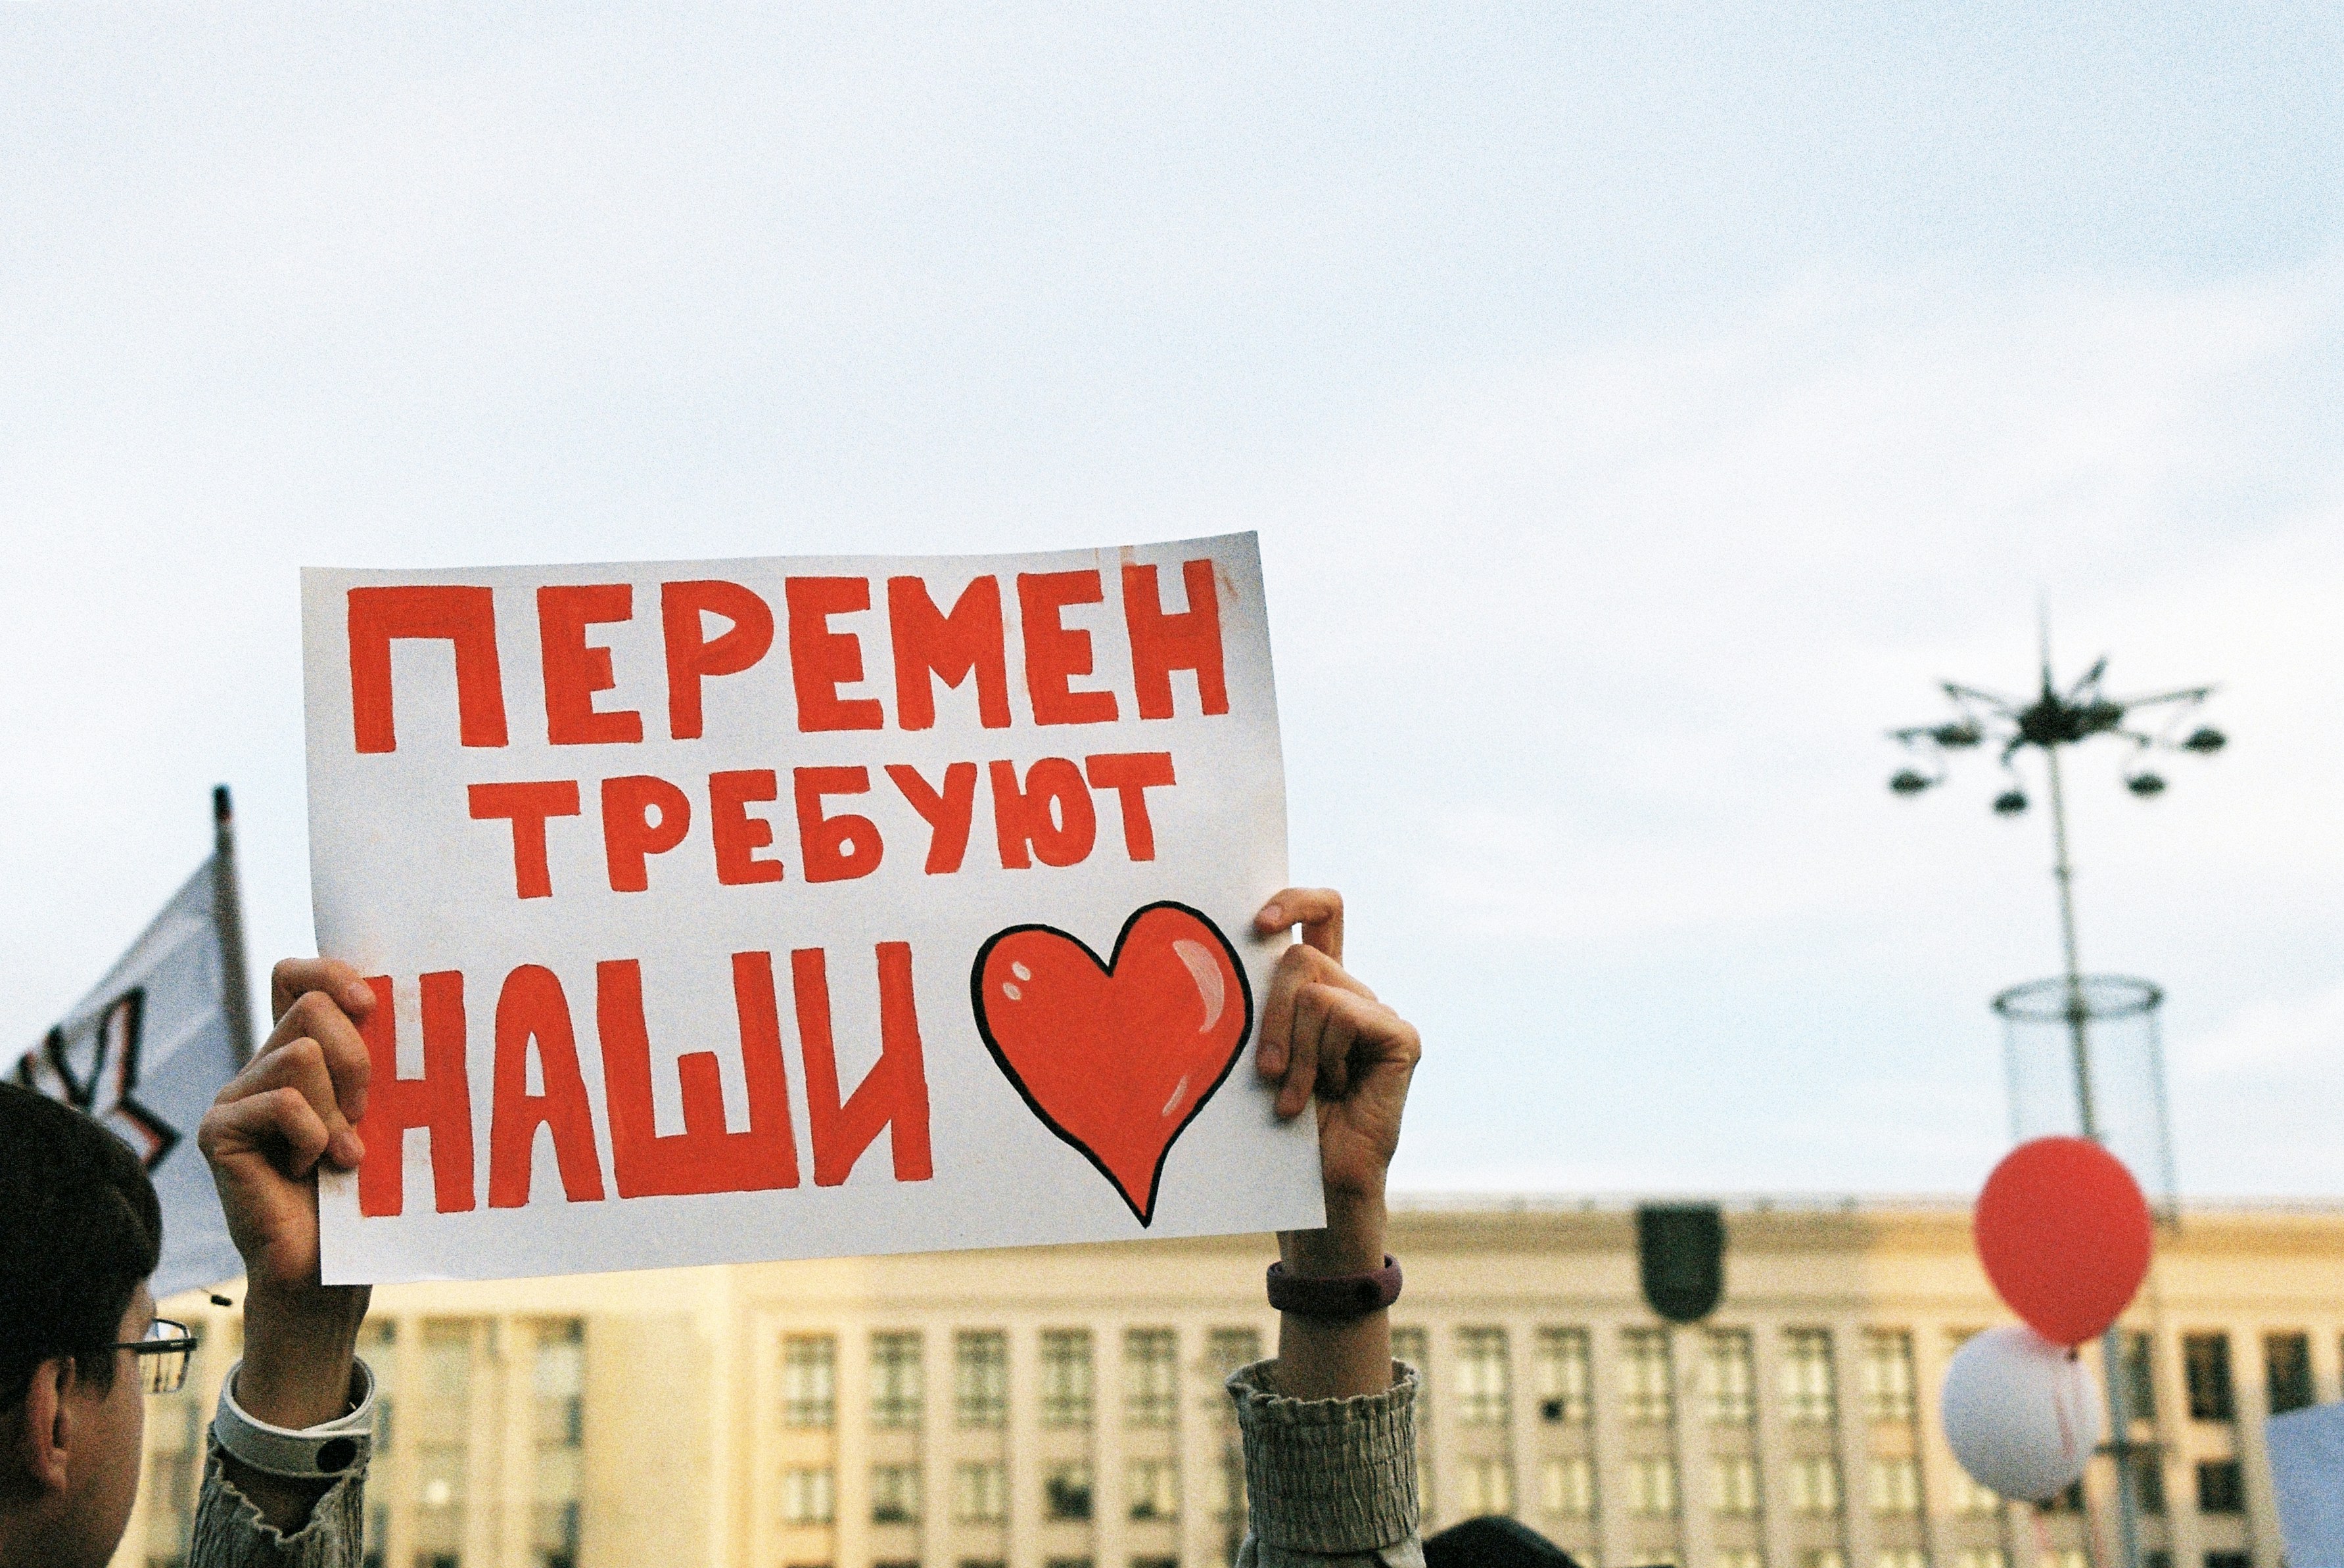 ПЕРЕМЕН
ТРЕБУЮТ
НАШИ